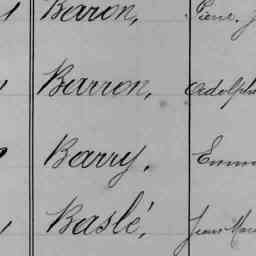 Baron, Pierre,
Barron, Adolphe
Barry, Emma
Baslé, Jean Marie